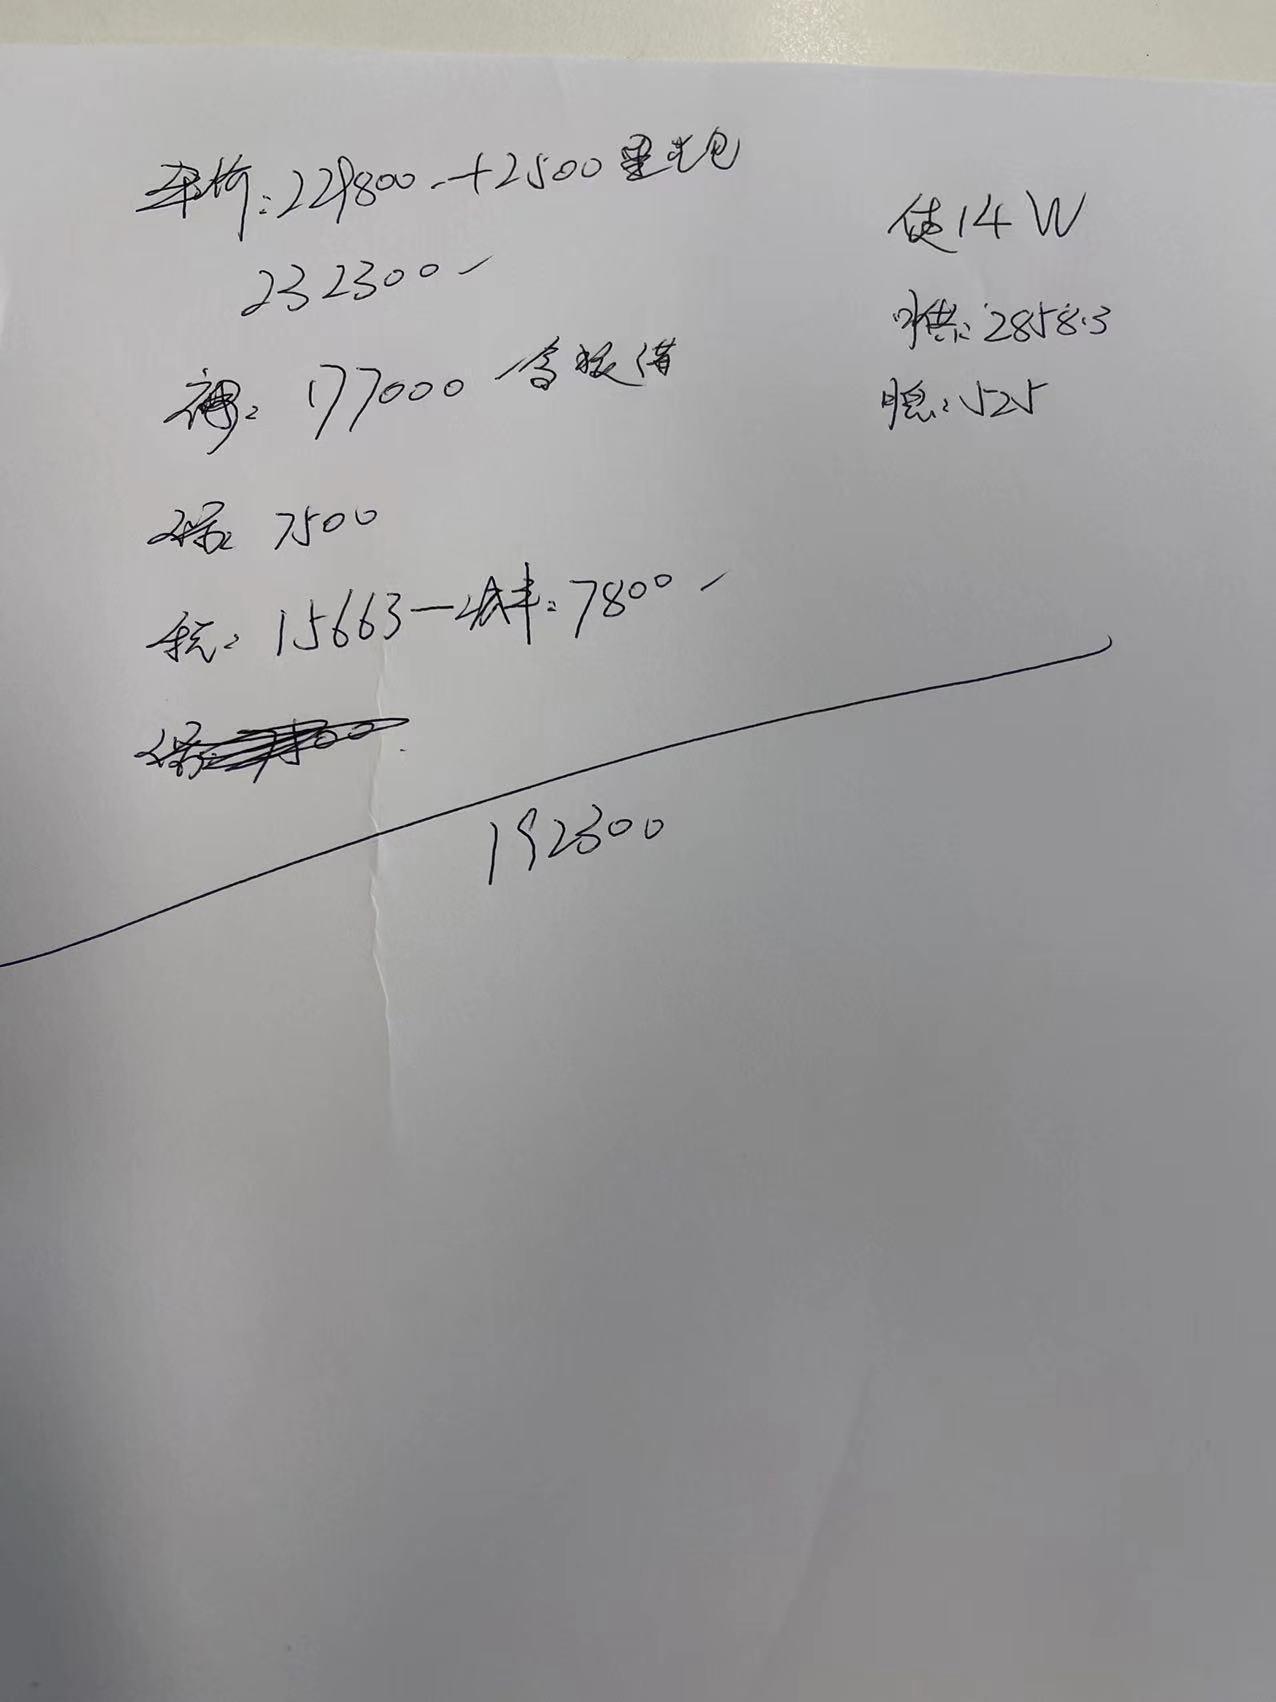 车价:229800.+2500星光包
232300
裸:177000 含报借
保:7500
税:15663一减半:7800
保:7500
192300
贷14W
月供:2858.3
月息:525